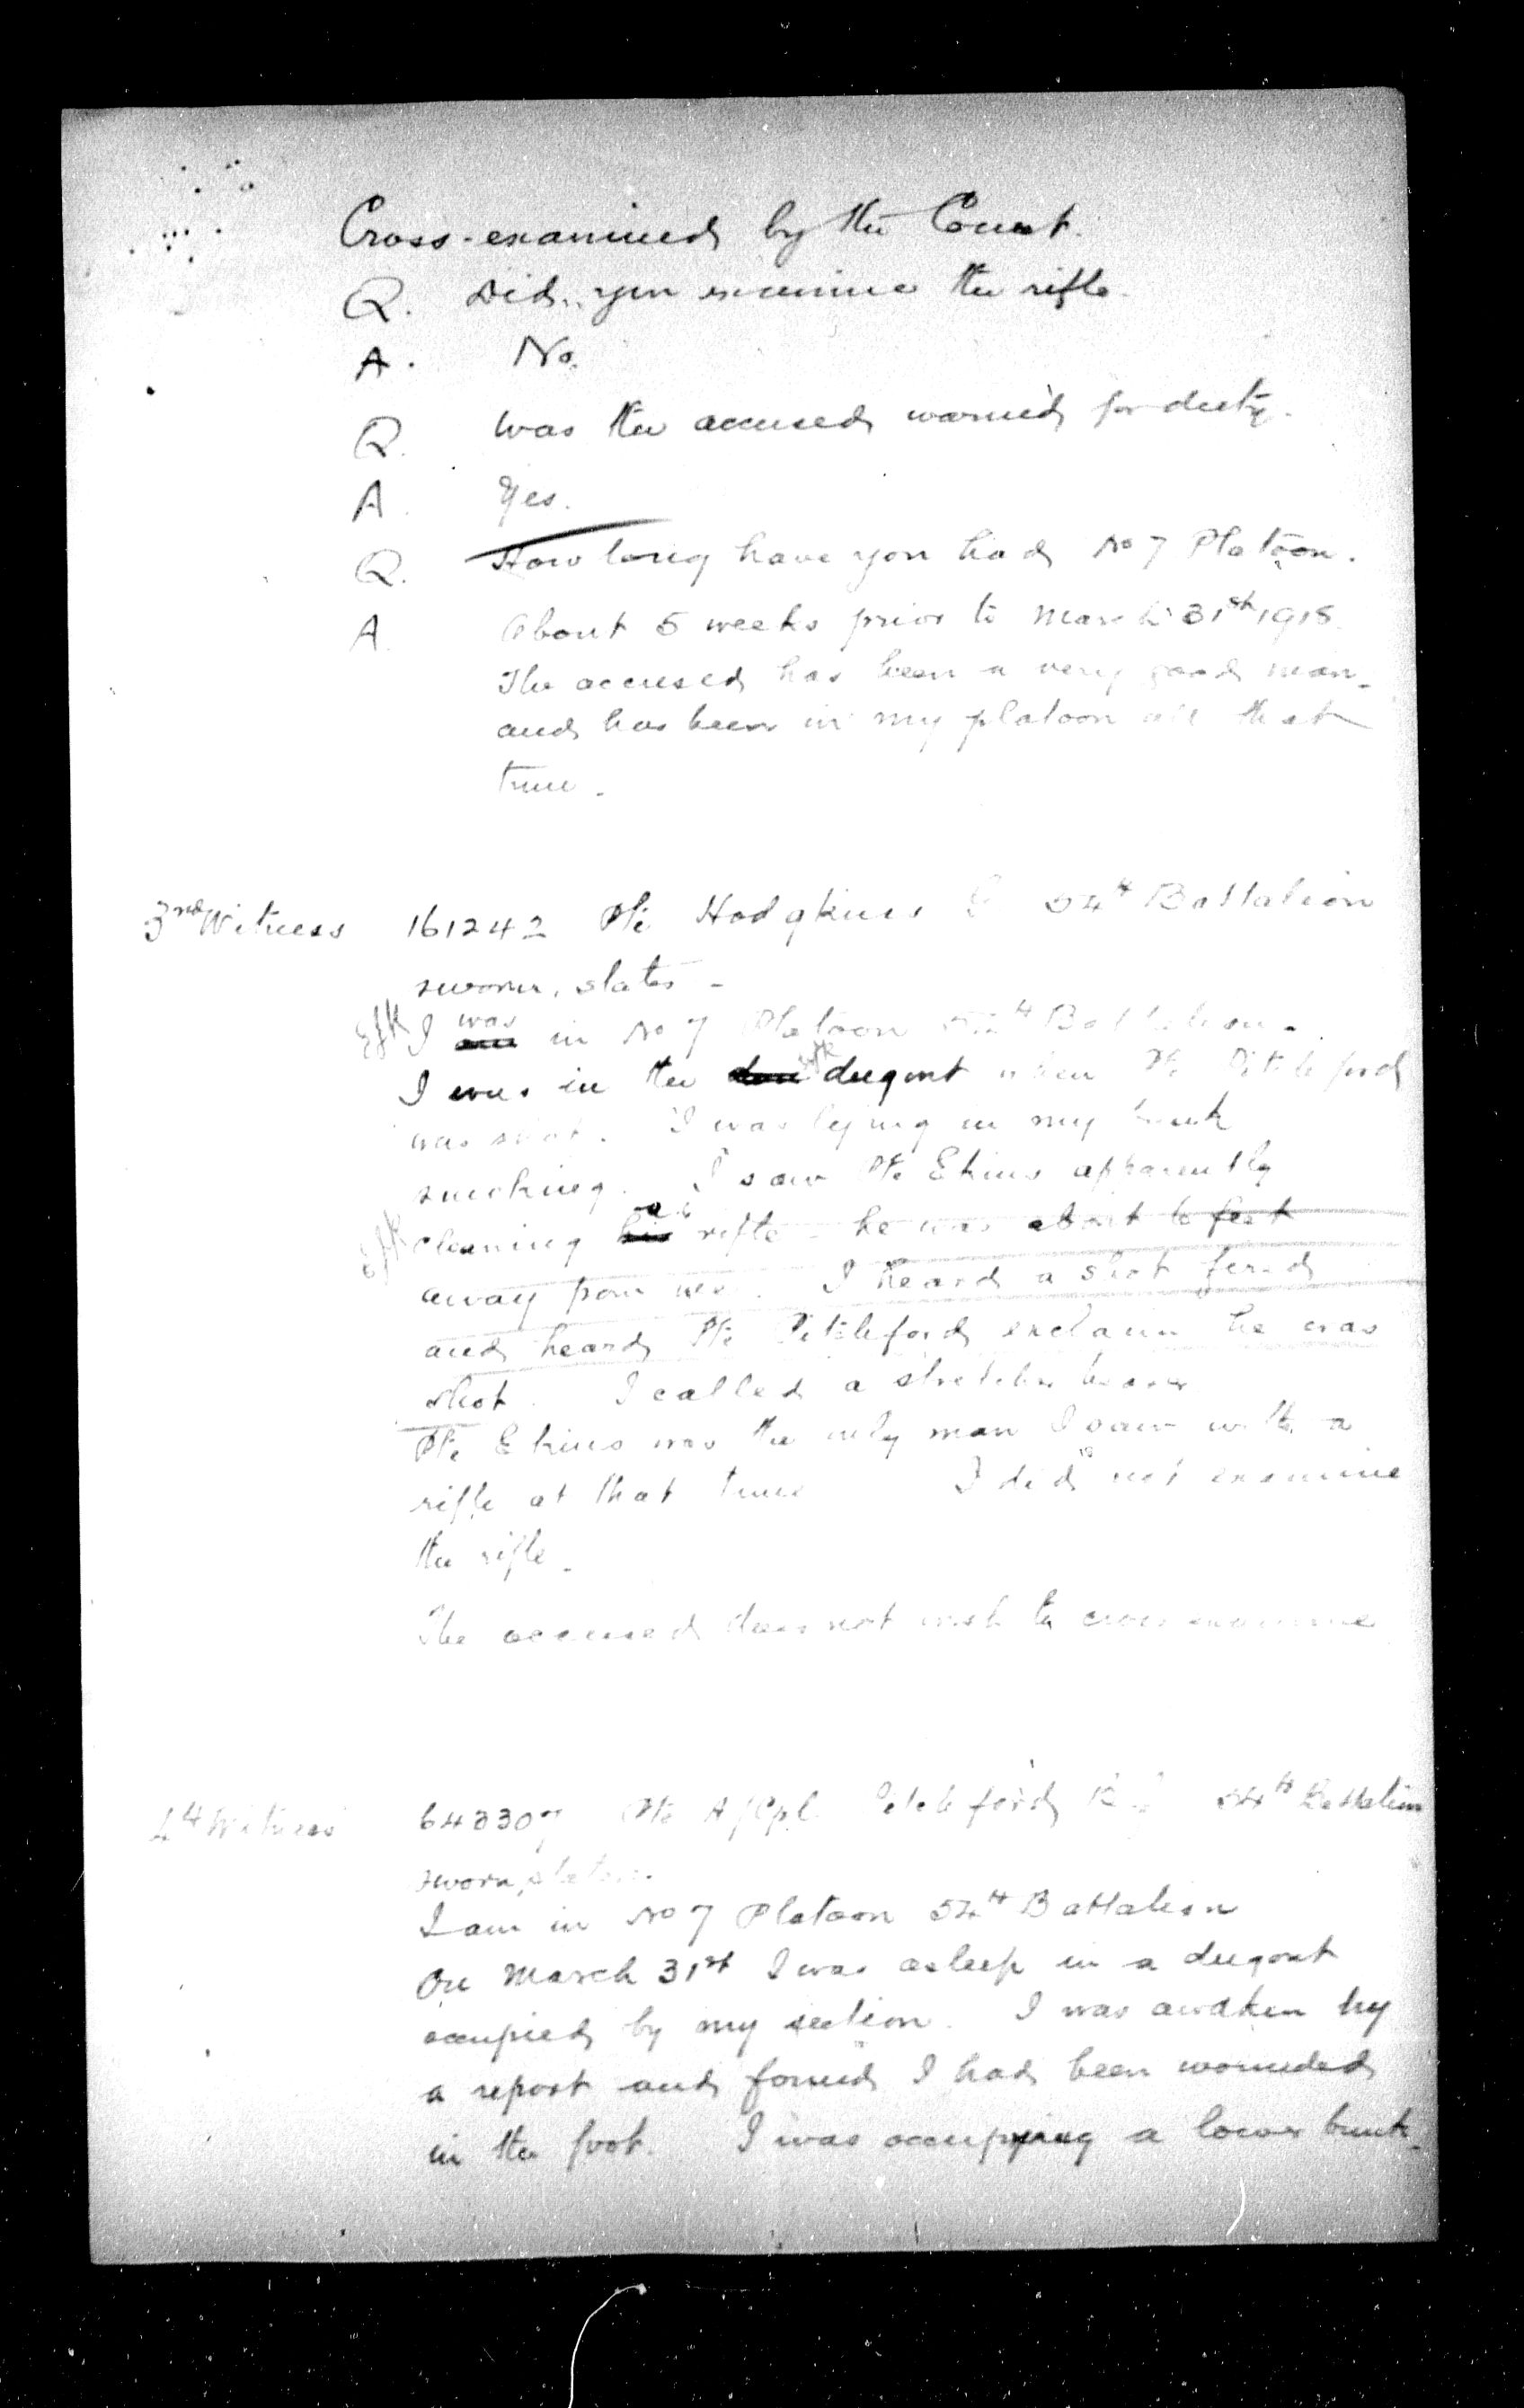 Cross-examined by the Court.
Q. Did you examine the rifle.
A. No.
Q. Was the accused warned for duty.
A. Yes.
Q. How long have you had No 7 Platoon.
A. About 5 weeks prior to March 31st 1918.
The accused has been a very good man
and has been in my platoon all that
time.
3rd Witness 161242 Pte Hodgkins 54th Battalion
sworn, states -
EfK I was am in No 7 Platoon 54th Battalion.
I was in the dugout when Pte Petchford
was shot. I was lying in my bunk
smoking. I saw Pte Ekins apparently
EfK cleaning his a rifle - he was about 6 feet
away from me. I heard a shot fired
and heard Pte Pitchford exclaim he was
shot. I called a stretcher bearer
Pte Ekins was the only man I saw with a
rifle at that time I did not examine
the rifle.
The accused does not wish to cross examine
4th Witness 643307 Pte A/Cpl 54th Battalion
sworn, states.
I am in No 7 Platoon 54th Battalion
On March 31st I was asleep in a dugout
occupied by my section. I was awaken by
a report and found I had been wounded
in the foot. I was occupying a lower bunk.